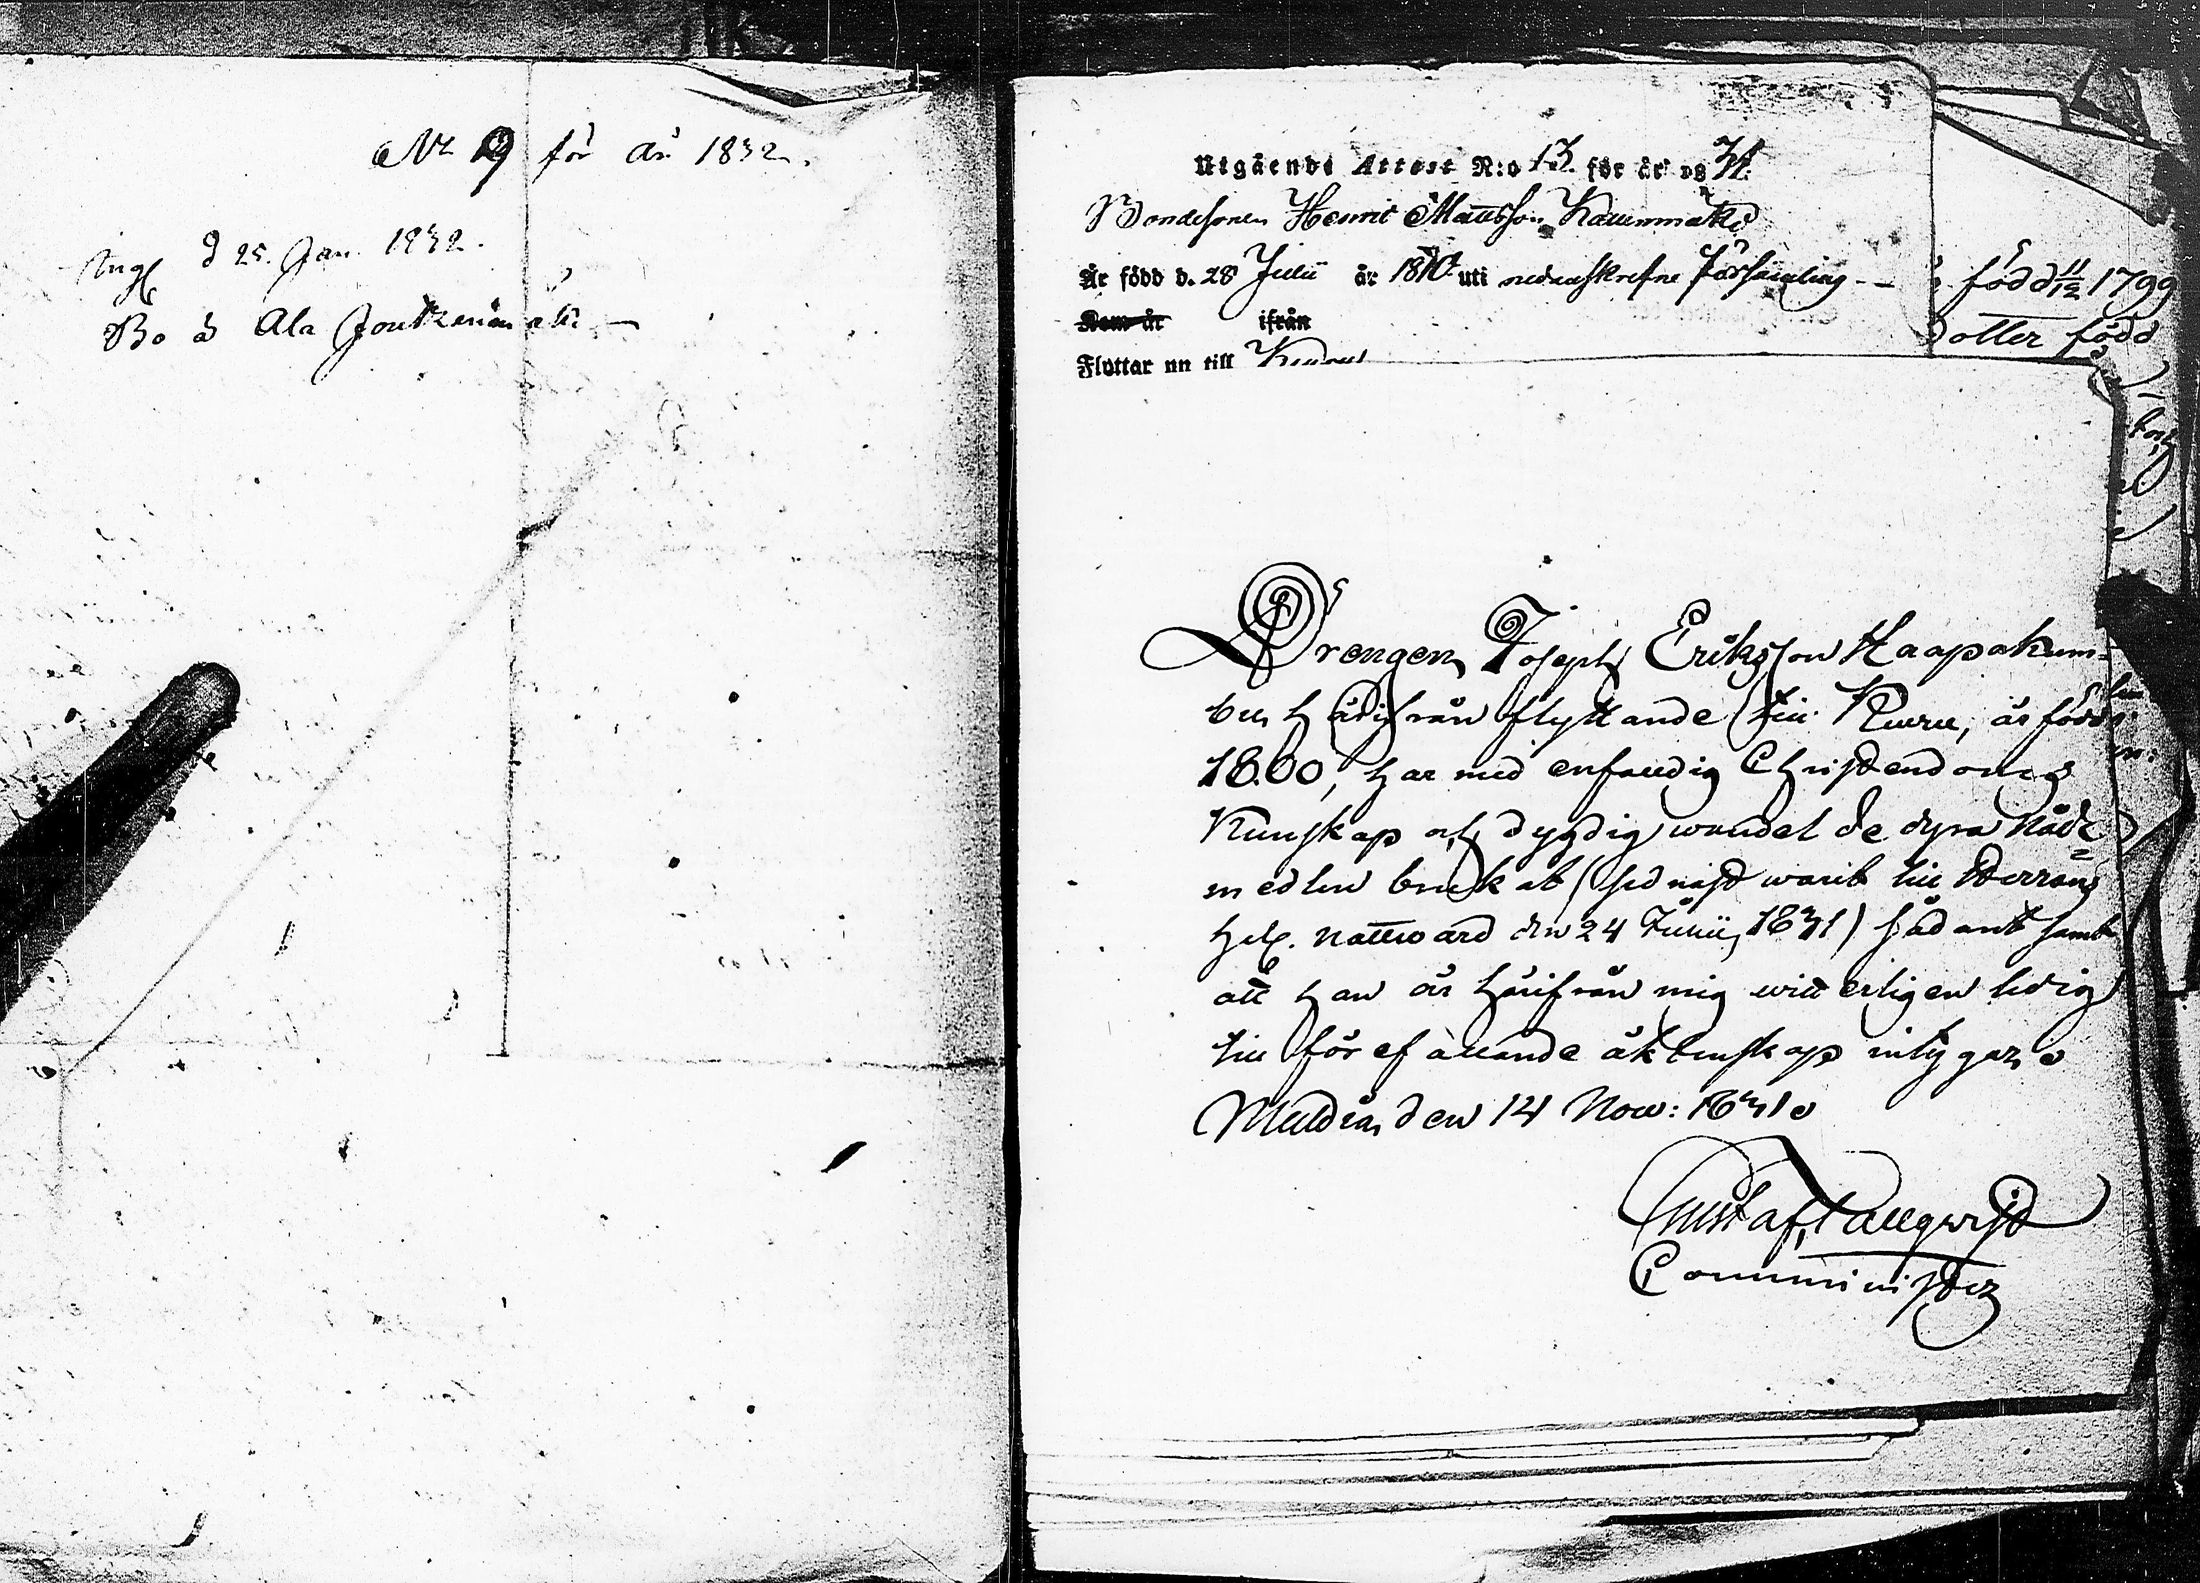 No 9 för år 1832.
Ing. d 25. Jan. 1832.
Bo å Ala
Utgående Attest N:o 13. för år 1831.
Bondesonen Henric Mattsson
Är född d. 28 Julii år 1810 uti nedanskrefne Församling
Kom år ifrån
Flyttar nu till
född 11/12 1799
dotter född
Drengen Joseph Eriksson Haapakum-
bu, härifrån flyttande till Kuru, är född
1800, har med enfaldig Christendoms
Kunskap och dygdig wandel de dyra Nåde-
medlen brukat (sednast warit till Herrans
hel. nattward den 24 Julii, 1831) sådant samt
att han är härifrån mig witterligen ledig
till förefallande äktenskap intygar.
Muldia, den 14 Now: 1831.
Gustaf Tallqwist
Comminister